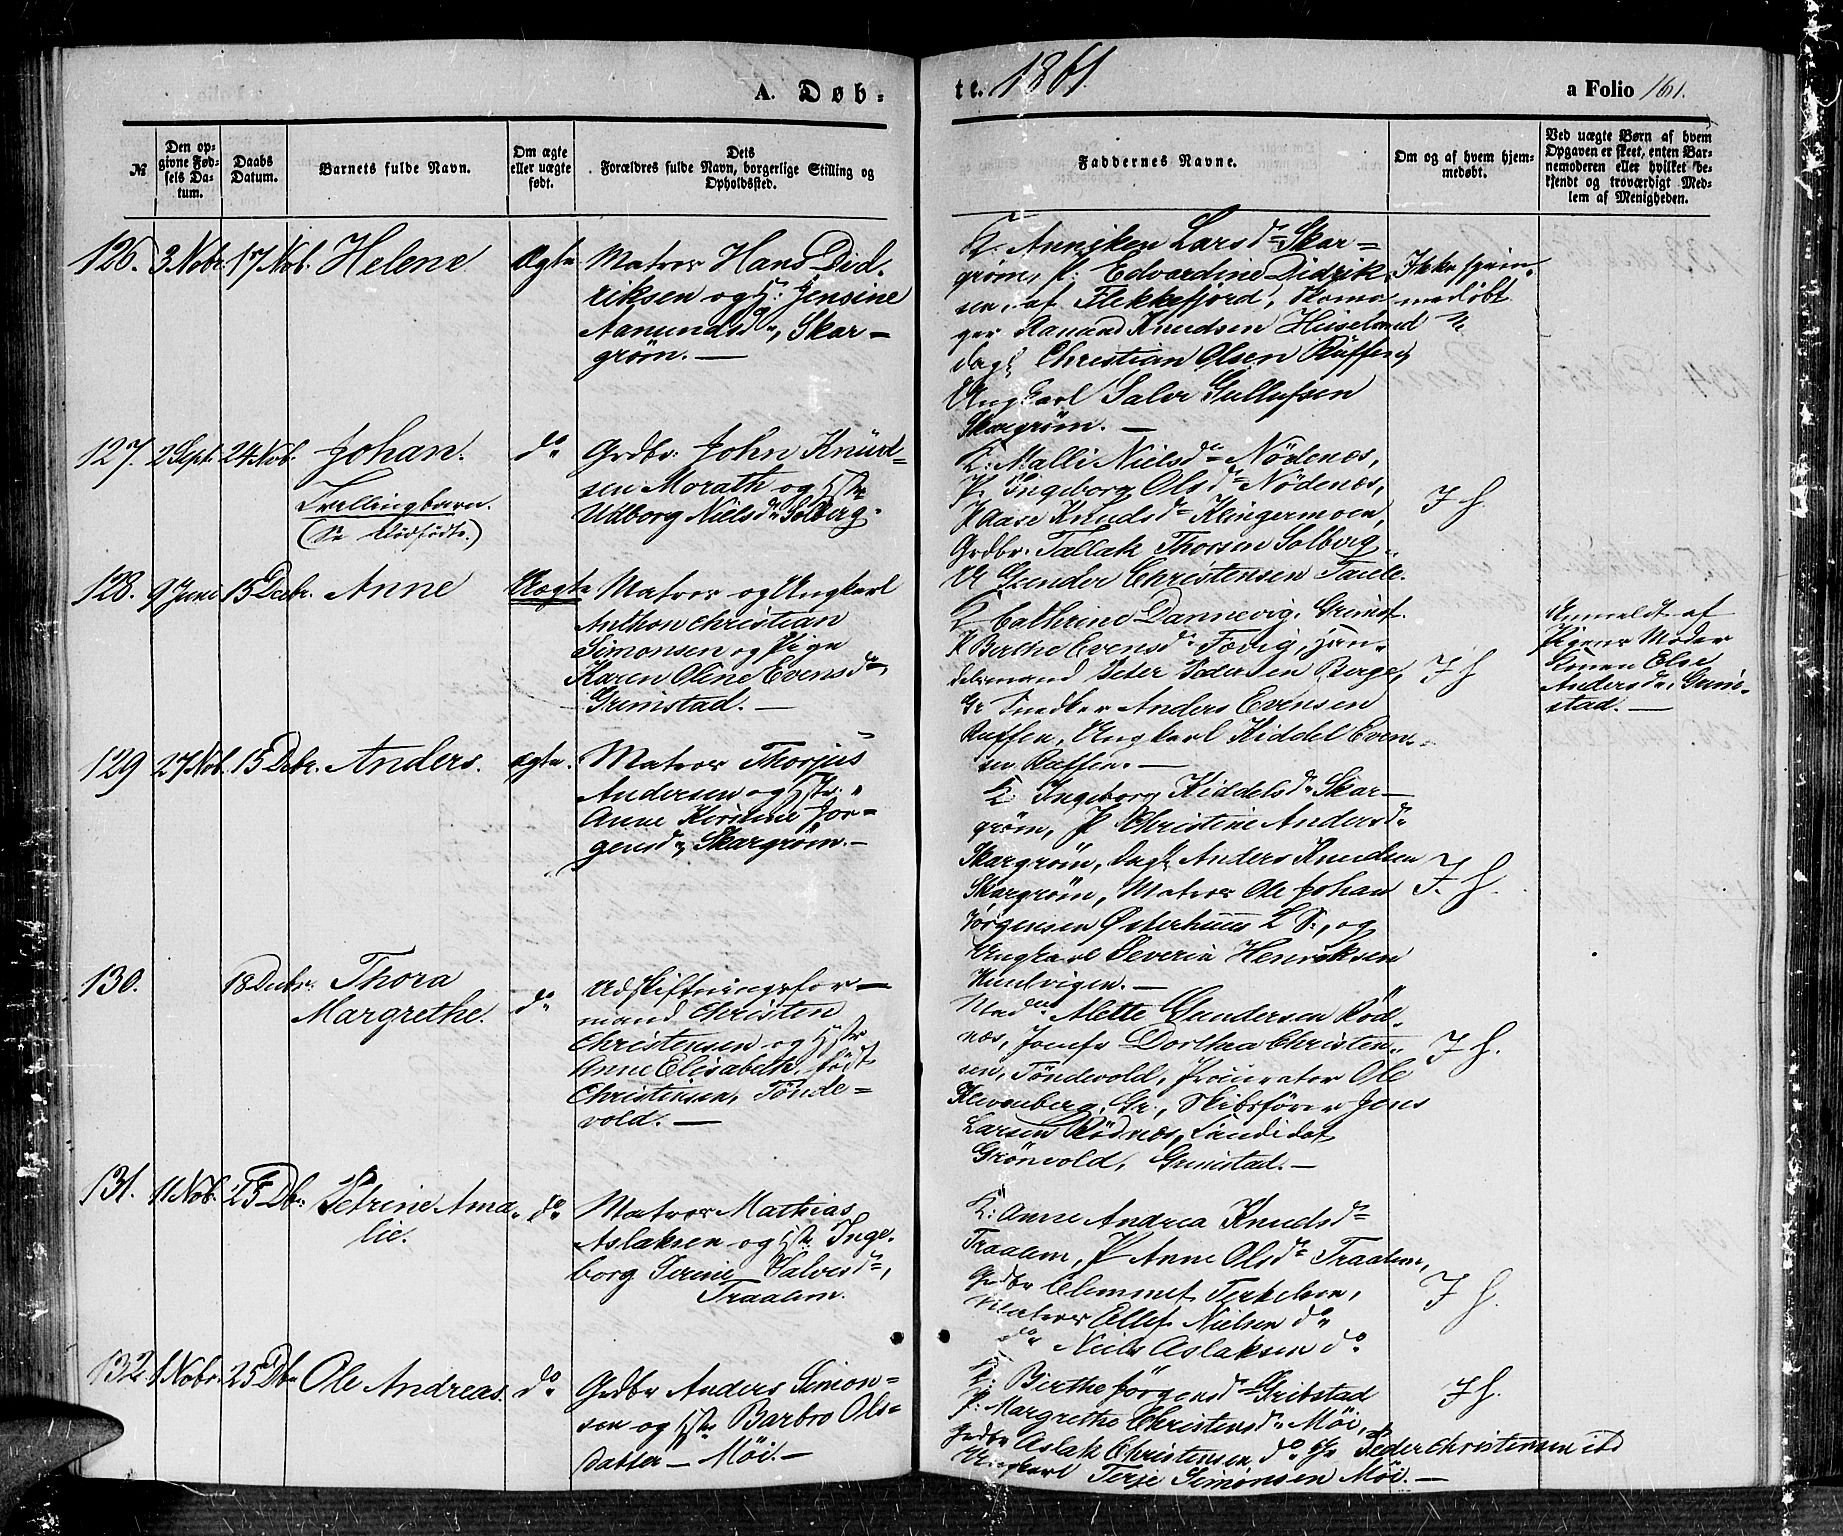 A. Døb-
te. 1861.
a Folio 161.
№
Den op-
givne Fød-
sels Da-
tum.
Daabs
Datum.
Barnets fulde Navn.
Om ægte
eller uægte
født.
Dets
Forældres fulde Navn, borgerlige Stilling og
Opholdssted.
Faddernes Navne.
Om og af hvem hjem-
medøbt.
Ved uægte Børn af hvem
Opgaven er skeet, enten Bar-
nemoderen eller hvilket be-
kjendt og troværdigt Med-
lem af Menigheden.
126. 3 Nobr. 17 Nob. Helene Ægte
Matros Hans Did-
riksen og H: Jensine
Aanundsdr, Skar-
grøm. —
K. Anniken Larsdr Skar-
grøm, P. Edvardine Didrik-
sen, af Flekkefjord,
Knudsen
dagl Christian Olsen Rüffen,
Ungkarl Salve Gullufsen
Skargrøm. —
Ikke hjem-
medøbt
127. 2 Sept. 24 Nob. Johan. do
Tvillingbarn.
(Se Dødfødte.)
Grdbr. John Knud-
sen Morath og Hstr
Udborg Nielsdr Solberg.
K: Malli Nielsdr Nödenæs,
P. Ingeborg Olsdr Nödenæs,
P Aase Knudsdr Klingermoen,
Grdbr. Tallak Thorsen Solberg,
U Gunder Christensen Taule.
I H.
128. 9 Juni 15 Decbr. Anne Uægte
Matros og Ungkarl
Anthon Christian
Simonsen og Pige
Karen Oline Evensdr
Grimstad. —
K Cathrine Dannevig, Grimst.
P Berthe Evensdr Fævig, Han-
delsmand Peter Pedersen Berge,
Gr. Snedker Anders Evensen
Ruffen, Ungkarl Kiddel Even-
sen Ruffen. —
I H
Anmeldt af
Pigens Moder
Konen Else
Andersdr, Grim-
stad. —
129 27 Nob. 15 Decbr. Anders. Ægte.
Matros Thorjus
Andersen og Hstr.
Anne Kirstine Jør-
gensdr Skargrøm. —
K. Ingeborg Kiddelsdr Skar-
grøm, P Christine Andersdr
Skargrøm, Dagl Anders Knudsen
Skargrøm, Matros Ole Johan
Jørgensen Østerhuus L. S., og
Ungkarl Severin Henriksen
I. H.
130. 18 Decbr. Thora
Margrethe. do
Udskiftningsfor-
mand Christen
Christensen og Hstr
Anne Elisabeth, født
Christensen, Tönde-
vold. —
Madm. Mette Gundersen Rød-
næs, Jomfr Dorthea Christen-
sen, Töndevold, Procurator Ole
Gr., Skibsfører Jens
Larsen Rödnæs, Candidat
Grönvold, Grimstad. —
I H.
131. 11 Nob. 25 Dbr. Petrine Ama-
lie. do
Matros Mathias
Aslaksen og Hstr Inge-
borg Serine Salvesdr,
Traalem.
K: Anne Andrea Knudsdr
Traalem, P Anne Olsdr Traalem,
Grdbr Clemmet Terkelsen,
Matros Ellef Nielsen do
do Niels Aslaksen do
I H.
132. 1 Nobr. 25 Dbr Ole Andreas. do
Grdbr Anders Simon-
sen og Hstr Barbro Ols-
datter — Möi. —
K. Birthe Jörgensdr Gribstad
P. Margrethe Christensdr Möi,
Grdbr Aslak Christensen do Peder Christensen
Ungkarl Terje Simonsen Möi. —
I H.